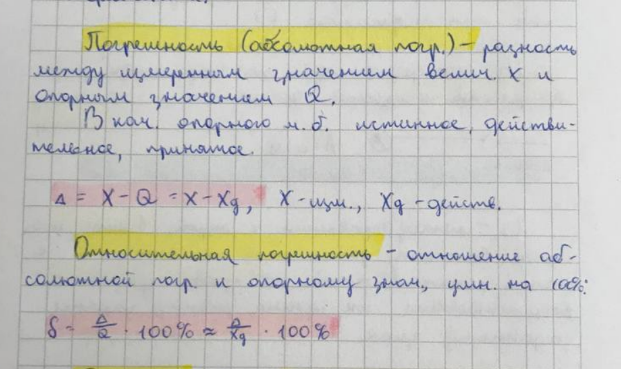 Погрешность (абсолютная погр.) – разность
между измеренным значением велич. X и
опорным значением Q.
В кач. опорного м.б. истинное, действи-
тельное, принятое.
Δ = X – Q = X – Xд, X – изм., Xд – действ.
Относительная погрешность – отношение аб-
солютной погр. к опорному знач., умн. на 100%:
δ = Δ/Q · 100% ≈ Δ/Xд · 100%